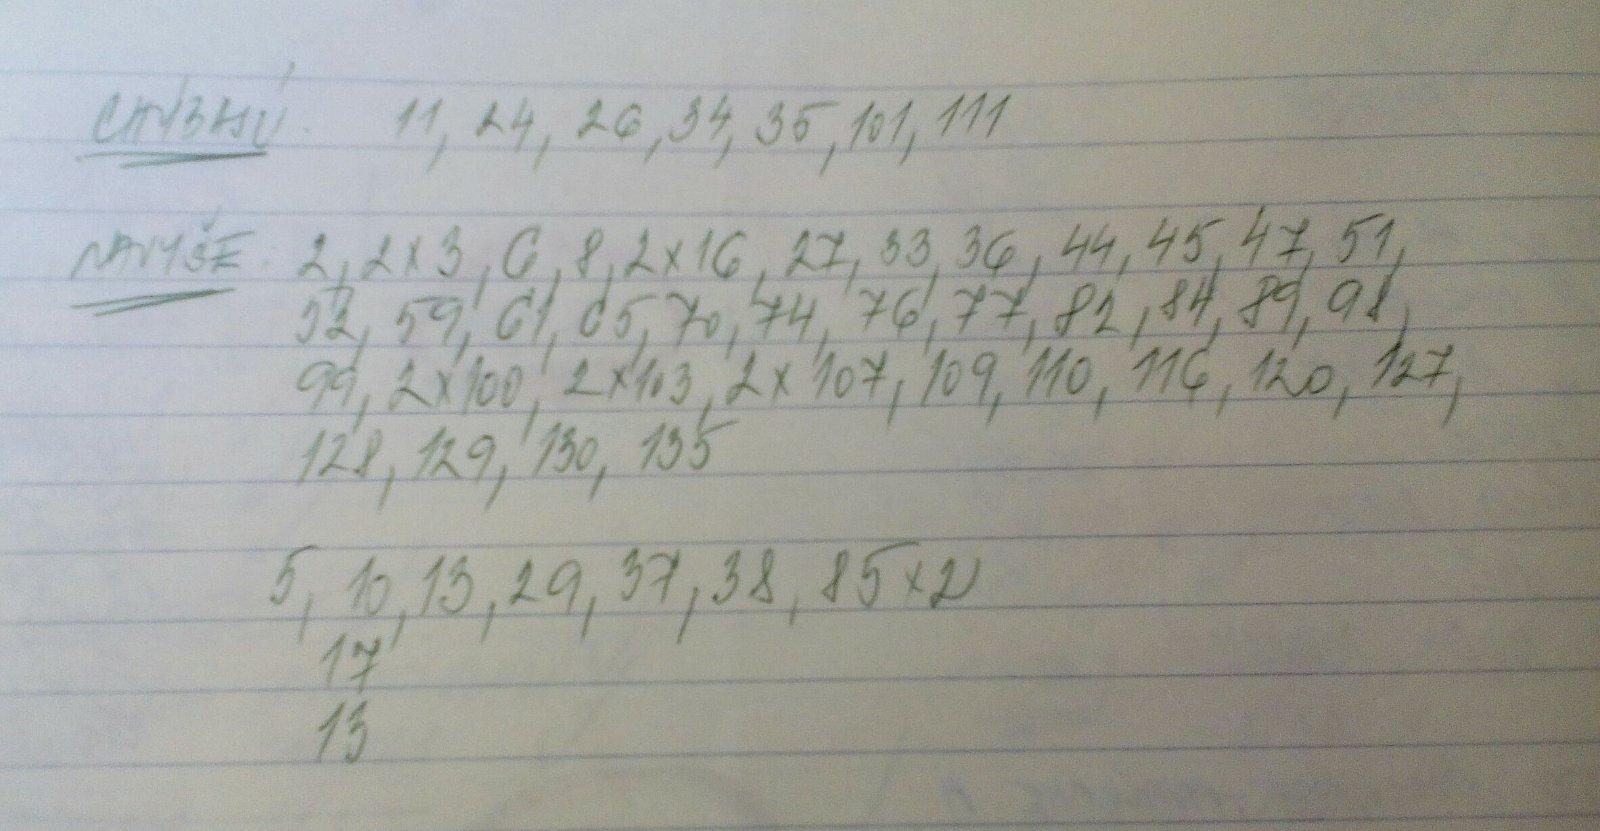 CHÝBAJÚ: 11, 24, 26, 34, 35, 101, 111
NAVYŠE: 2, 2x3, 6, 8, 2x16, 27, 33, 36, 44, 45, 47, 51,
52, 59, 61, 65, 70, 74, 76, 77, 82, 84, 89, 98,
99, 2x100, 2x103, 2x107, 109, 110, 116, 120, 127,
128, 129, 130, 135
5, 10, 13, 29, 37, 38, 85x2
17
13